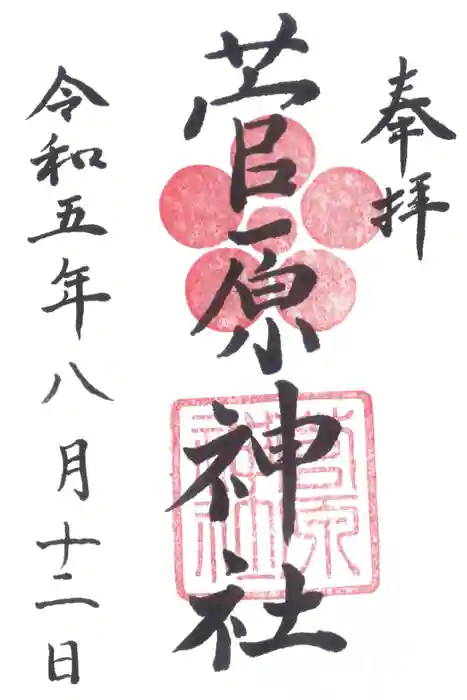 奉拝
菅原神社
菅原神社
令和五年八月十二日